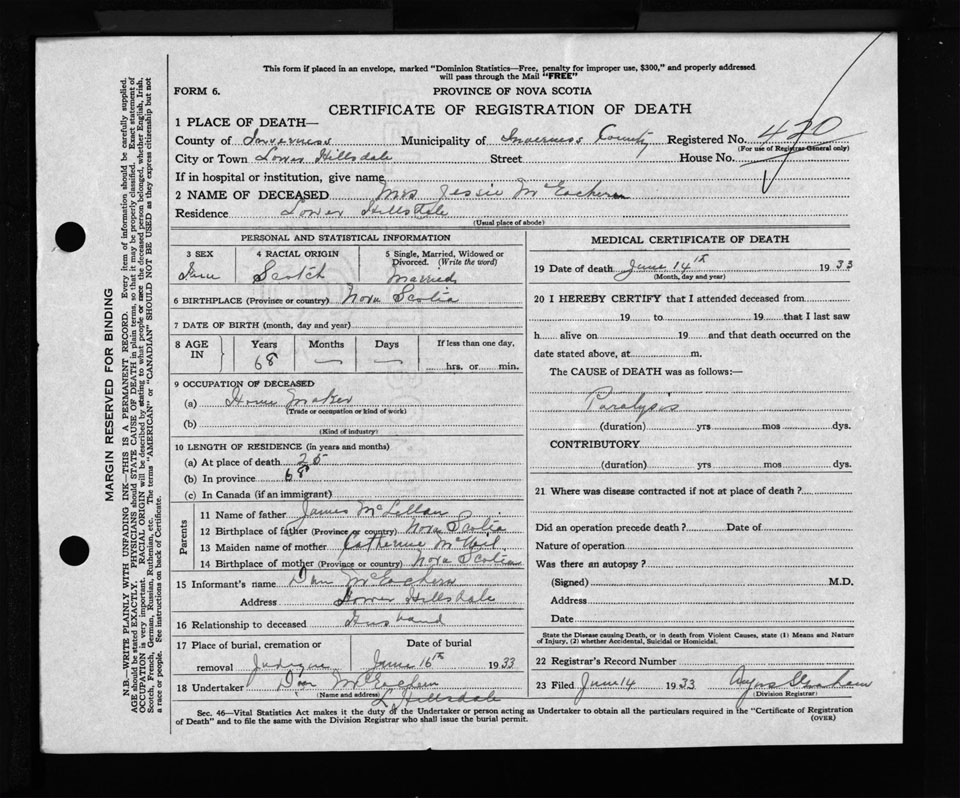 This form if placed in an envelope, marked "Dominion Statistics—Free, penalty for improper use, $300," and properly addressed
will pass through the Mail "FREE"
FORM 6.
PROVINCE OF NOVA SCOTIA
CERTIFICATE OF REGISTRATION OF DEATH
1 PLACE OF DEATH—
County of Inverness Municipality of Inverness County Registered No. 420
(For use of Registrar General only)
City or Town Lower Hillsdale Street House No.
If in hospital or institution, give name
2 NAME OF DECEASED Mrs Jessie McEachern
Residence Lower Hillsdale
(Usual place of abode)
PERSONAL AND STATISTICAL INFORMATION
3 SEX 4 RACIAL ORIGIN 5 Single, Married, Widowed or
Divorced. (Write the word)
Fem Scotch Married
6 BIRTHPLACE (Province or country) Nova Scotia
7 DATE OF BIRTH (month, day and year)
8 AGE IN Years Months Days If less than one day,
68 — — hrs. or min.
9 OCCUPATION OF DECEASED
(a) Home Maker
(Trade or occupation or kind of work)
(b)
(Kind of industry)
10 LENGTH OF RESIDENCE (in years and months)
(a) At place of death 25
(b) In province 68
(c) In Canada (if an immigrant)
Parents
11 Name of father James McLellan
12 Birthplace of father (Province or country) Nova Scotia
13 Maiden name of mother Catherine McNeil
14 Birthplace of mother (Province or country) Nova Scotia
15 Informant's name Dan McEachern
Address Lower Hillsdale
16 Relationship to deceased Husband
17 Place of burial, cremation or Date of burial
removal Judique June 16th 1933
18 Undertaker Dan McEachern
(Name and address)
L Hillsdale
MEDICAL CERTIFICATE OF DEATH
19 Date of death June 14th 1933
(Month, day and year)
20 I HEREBY CERTIFY that I attended deceased from
19 to 19 that I last saw
h alive on 19 and that death occurred on the
date stated above, at m.
The CAUSE of DEATH was as follows:—
Paralysis
(duration) yrs mos dys.
CONTRIBUTORY
(duration) yrs mos dys.
21 Where was disease contracted if not at place of death?
Did an operation precede death? Date of
Nature of operation
Was there an autopsy?
(Signed) M.D.
Address
Date
State the Disease causing Death, or in death from Violent Causes, state (1) Means and Nature
of Injury, (2) whether Accidental, Suicidal or Homicidal.
22 Registrar's Record Number
23 Filed June 14 1933 Angus Graham
(Division Registrar)
Sec. 46—Vital Statistics Act makes it the duty of the Undertaker or person acting as Undertaker to obtain all the particulars required in the "Certificate of Registration
of Death" and to file the same with the Division Registrar who shall issue the burial permit.
(OVER)
MARGIN RESERVED FOR BINDING
N.B.—WRITE PLAINLY WITH UNFADING INK—THIS IS A PERMANENT RECORD. Every item of information should be carefully supplied.
AGE should be stated EXACTLY. PHYSICIANS should STATE CAUSE OF DEATH in plain terms, so that it may be properly classified. Exact statement of
OCCUPATION is very important. RACIAL ORIGIN will be described by stating to what people or race the deceased person belonged, whether English, Irish,
Scotch, French, German, Russian, Ruthenian, etc. The terms "AMERICAN" or "CANADIAN" SHOULD NOT BE USED as they express citizenship but not
a race or people. See instructions on back of Certificate.